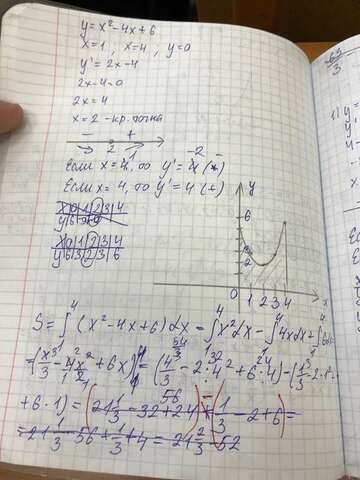 y = x² - 4x + 6
x = 1, x = 4, y = 0
y' = 2x - 4
2x - 4 = 0
2x = 4
x = 2 - кр. точка
- +
2
Если x = 1, то y' = -2 (-)
Если x = 4, то y' = 4 (+)
x 0 1 2 3 4
y 6 3 2
x 0 1 2 3 4
y 6 3 2 3 6
y
6
2
0 1 2 3 4 x
S = ∫₁⁴ (x² - 4x + 6) dx = ∫₁⁴ x² dx - ∫₁⁴ 4x dx + ∫₁⁴ 6
= (x³/3 - 4x²/2 + 6x)|₁⁴ = (4³/3 - 2·4² + 6·4) - (1³/3 - 2·1²
+ 6·1) = (21 1/3 - 32 + 24) - (1/3 - 2 + 6) =
= 21 1/3 - 56 + 1/3 + 4 = 21 2/3 - 52
63
3